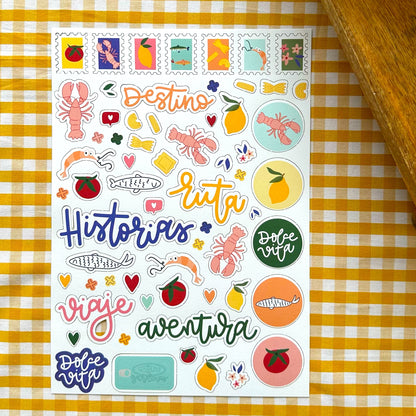 Destino
ruta
Historias
Dolce
Vita
viaje
aventura
Dolce
Vita